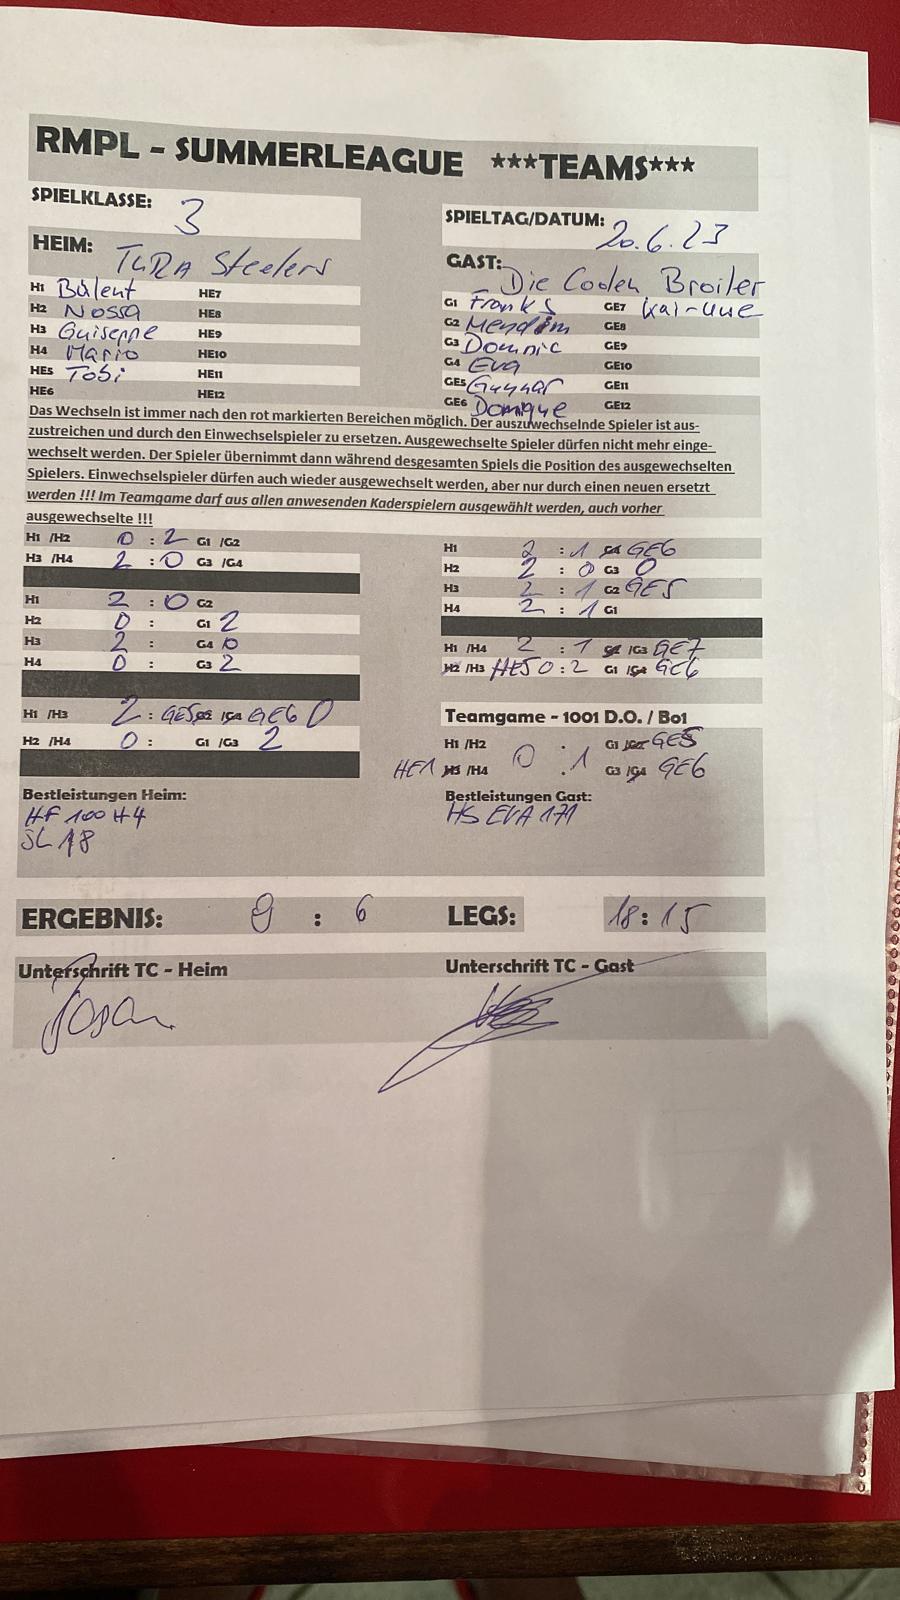 RMPL – SUMMERLEAGUE ***TEAMS***
SPIELKLASSE: 3
SPIELTAG/DATUM: 20.6.23
HEIM: TURA Steelers
GAST: Die Coolen Broiler
H1 Bülent HE7
H2 Nossa HE8
H3 Guiseppe HE9
H4 Mario HE10
HE5 Tobi HE11
HE6 HE12
G1 Frank S GE7 Kai-Uwe
G2 Mendim GE8
G3 Dominic GE9
G4 Eva GE10
GE5 Gunnar GE11
GE6 Domique GE12
Das Wechseln ist immer nach den rot markierten Bereichen möglich. Der auszuwechselnde Spieler ist aus-
zustreichen und durch den Einwechselspieler zu ersetzen. Ausgewechselte Spieler dürfen nicht mehr einge-
wechselt werden. Der Spieler übernimmt dann während desgesamten Spiels die Position des ausgewechselten
Spielers. Einwechselspieler dürfen auch wieder ausgewechselt werden, aber nur durch einen neuen ersetzt
werden !!! Im Teamgame darf aus allen anwesenden Kaderspielern ausgewählt werden, auch vorher
ausgewechselte !!!
H1 /H2 0 : 2 G1 /G2
H3 /H4 2 : 0 G3 /G4
H1 2 : 0 G2
H2 0 : G1 2
H3 2 : G4 0
H4 0 : G3 2
H1 /H3 2 : GE5 G2 /G4 GE6 0
H2 /H4 0 : G1 /G3 2
H1 2 : 1 G4 GE6
H2 2 : 0 G3 0
H3 2 : 1 G2 GE5
H4 2 : 1 G1
H1 /H4 2 : 1 G2 /G3 GE7
H2 /H3 HE5 0 : 2 G1 /G4 GE6
Teamgame - 1001 D.O. / Bo1
H1 /H2 G1 /G2 GE5
0 : 1
HE1 H3 /H4 G3 /G4 GE6
Bestleistungen Heim:
HF 100 H4
SL 18
Bestleistungen Gast:
HS EVA 171
ERGEBNIS: 9 : 6
LEGS: 18 : 15
Unterschrift TC - Heim
Unterschrift TC - Gast